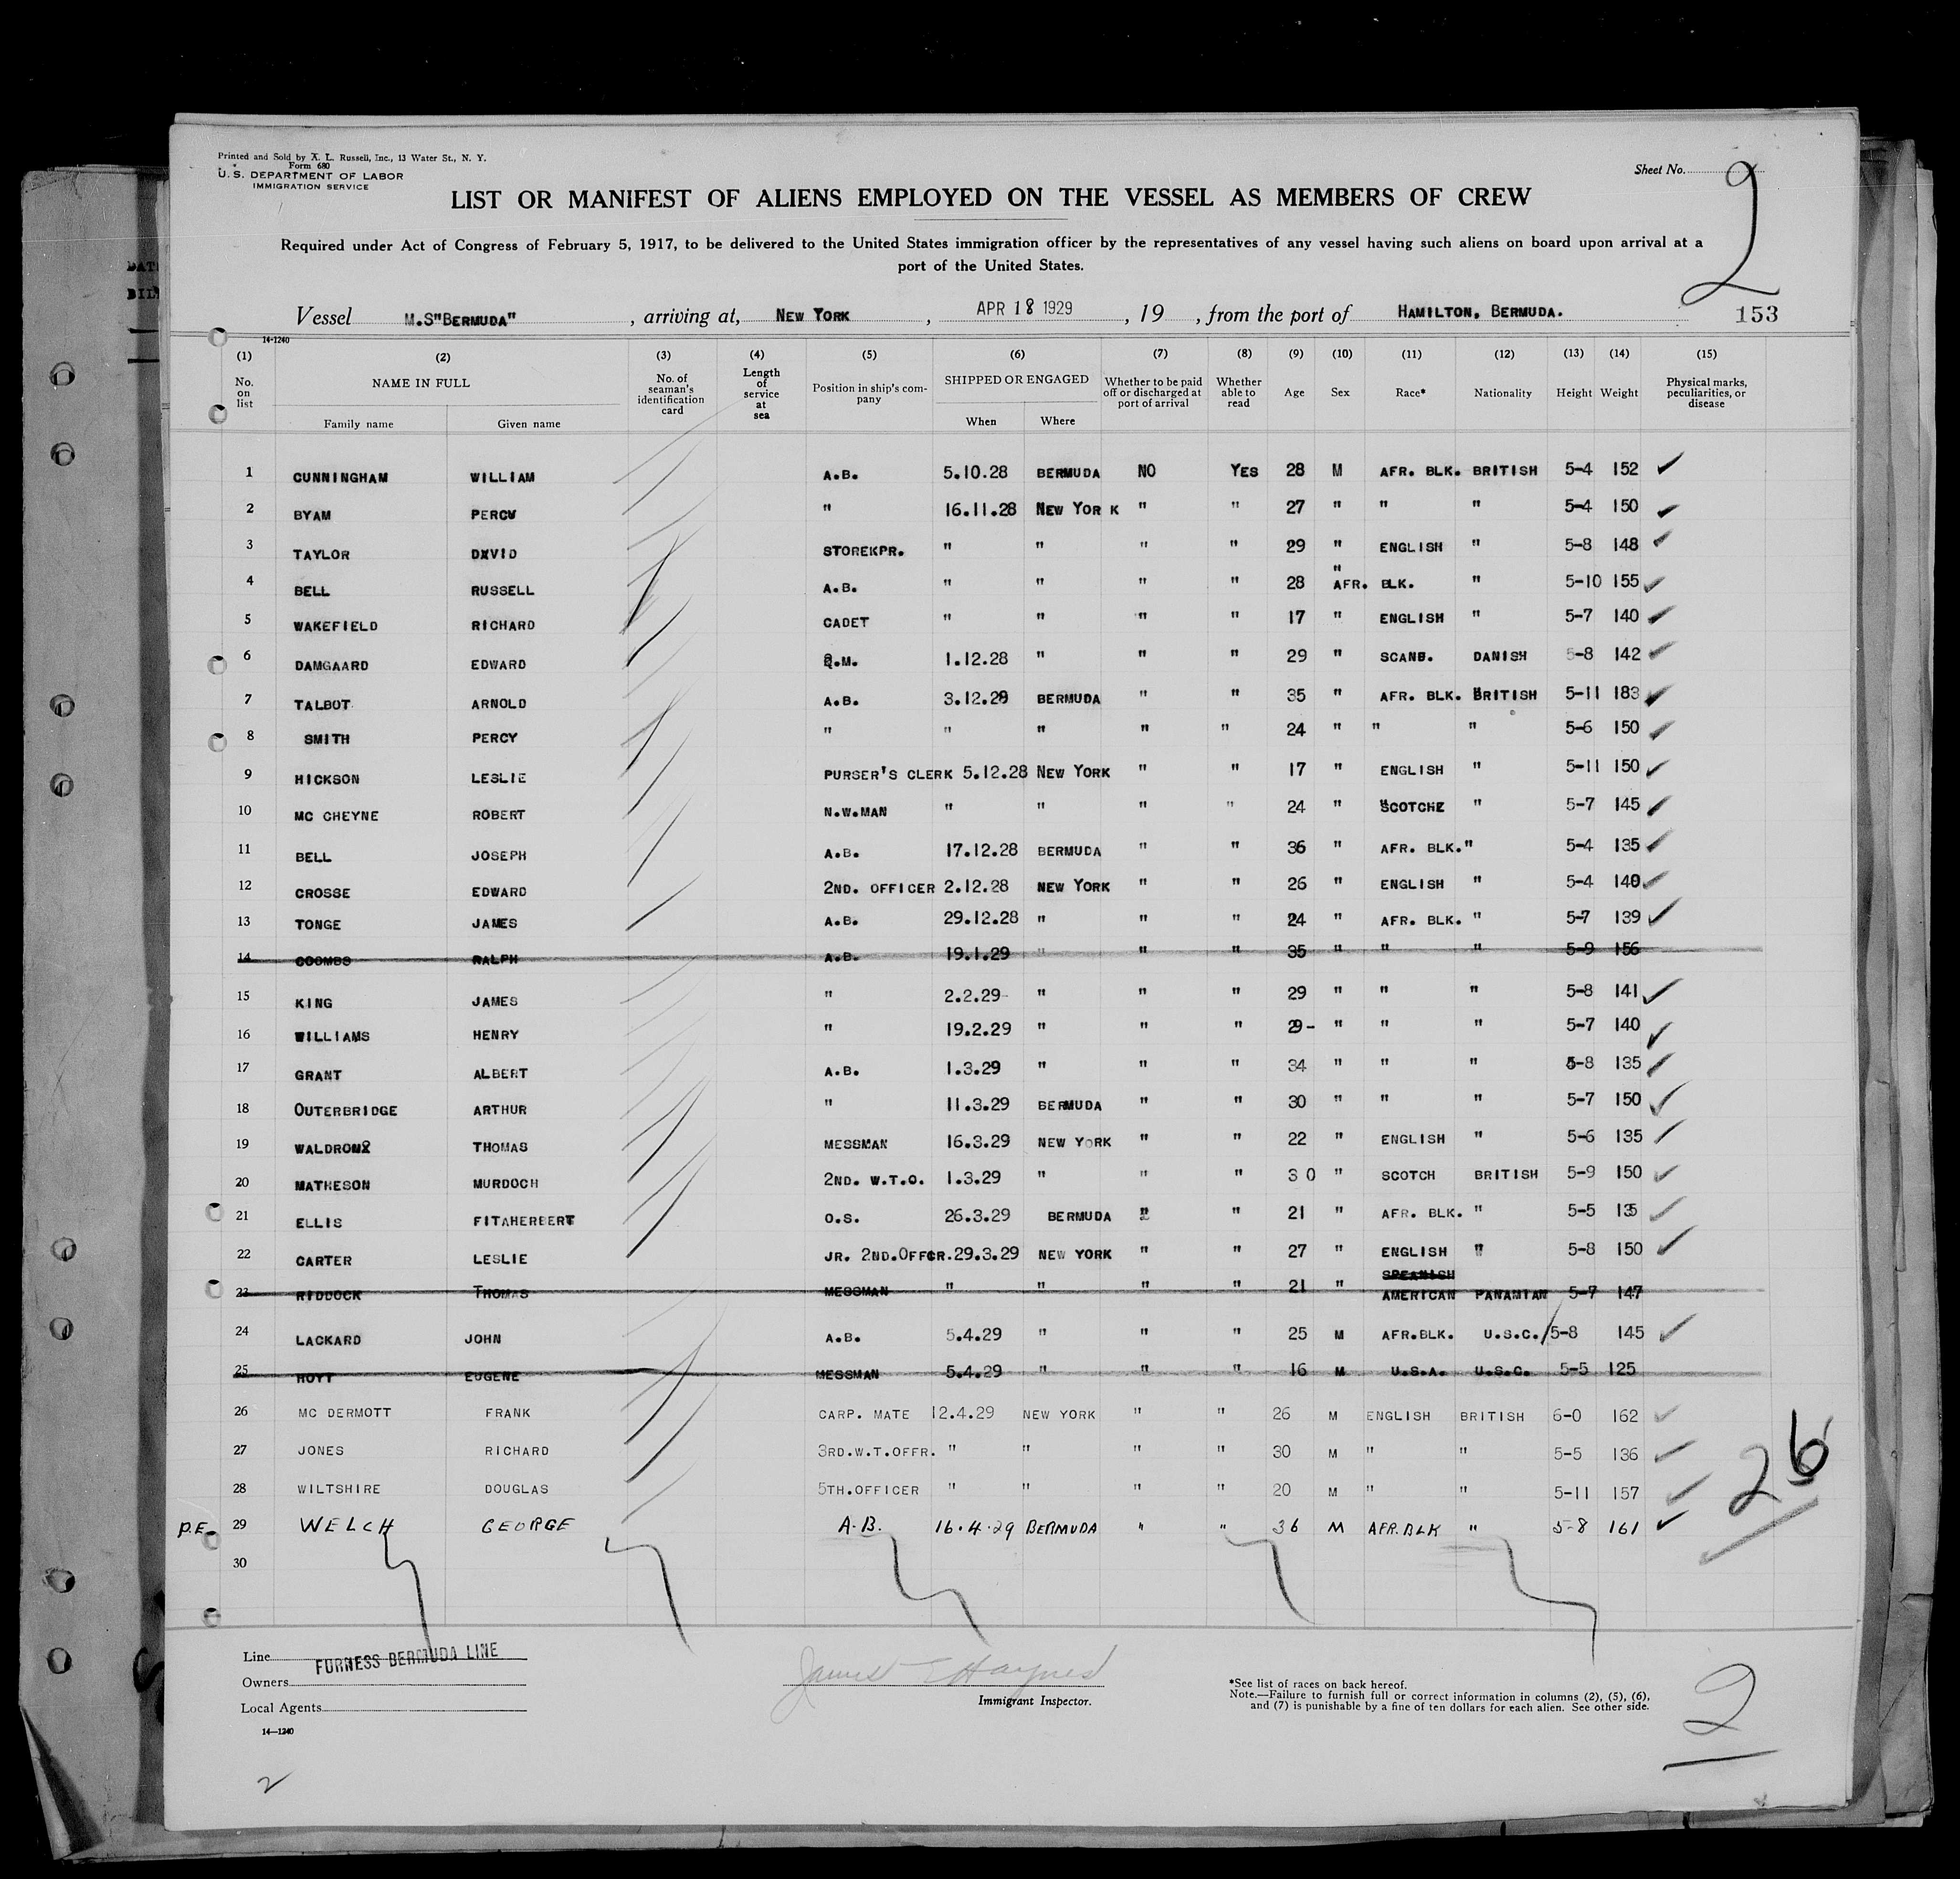 Printed and Sold by A. L. Russell, Inc., 13 Water St., N. Y.
Form 680
U. S. DEPARTMENT OF LABOR
IMMIGRATION SERVICE
Sheet No. 2
LIST OR MANIFEST OF ALIENS EMPLOYED ON THE VESSEL AS MEMBERS OF CREW
Required under Act of Congress of February 5, 1917, to be delivered to the United States immigration officer by the representatives of any vessel having such aliens on board upon arrival at a
port of the United States.
Vessel M.S"BERMUDA" , arriving at, NEW YORK , APR 18 1929 , 19 , from the port of HAMILTON, BERMUDA. 153
14-1240
(1) (2) (3) (4) (5) (6) (7) (8) (9) (10) (11) (12) (13) (14) (15)
No. on list NAME IN FULL Family name Given name No. of seaman's identification card Length of service at sea Position in ship's company SHIPPED OR ENGAGED When Where Whether to be paid off or discharged at port of arrival Whether able to read Age Sex Race* Nationality Height Weight Physical marks, peculiarities, or disease
1 CUNNINGHAM WILLIAM A.B. 5.10.28 BERMUDA NO YES 28 M AFR. BLK. BRITISH 5-4 152
2 BYAM PERCY " 16.11.28 NEW YOR K " " 27 " " " 5-4 150
3 TAYLOR DXVID STOREKPR. " " " " 29 " ENGLISH " 5-8 148
4 BELL RUSSELL A.B. " " " " 28 " AFR. BLK. " 5-10 155
5 WAKEFIELD RICHARD CADET " " " " 17 " ENGLISH " 5-7 140
6 DAMGAARD EDWARD Q.M. 1.12.28 " " " 29 " SCAND. DANISH 5-8 142
7 TALBOT ARNOLD A.B. 3.12.28 BERMUDA " " 35 " AFR. BLK. BRITISH 5-11 183
8 SMITH PERCY " " " " " 24 " " " 5-6 150
9 HICKSON LESLIE PURSER'S CLERK 5.12.28 NEW YORK " " 17 " ENGLISH " 5-11 150
10 MC CHEYNE ROBERT N.W.MAN " " " " 24 " SCOTCHE " 5-7 145
11 BELL JOSEPH A.B. 17.12.28 BERMUDA " " 36 " AFR. BLK. " 5-4 135
12 CROSSE EDWARD 2ND. OFFICER 2.12.28 NEW YORK " " 26 " ENGLISH " 5-4 140
13 TONGE JAMES A.B. 29.12.28 " " " 24 " AFR. BLK. " 5-7 139
14 COOMBS RALPH A.B. 19.1.29 " " " 35 " " " 5-9 156
15 KING JAMES " 2.2.29 " " " 29 " " " 5-8 141
16 WILLIAMS HENRY " 19.2.29 " " " 29- " " " 5-7 140
17 GRANT ALBERT A.B. 1.3.29 " " " 34 " " " 5-8 135
18 OUTERBRIDGE ARTHUR " 11.3.29 BERMUDA " " 30 " " " 5-7 150
19 WALDRON THOMAS MESSMAN 16.3.29 NEW YORK " " 22 " ENGLISH " 5-6 135
20 MATHESON MURDOCH 2ND. W.T.O. 1.3.29 " " " 3 0 " SCOTCH BRITISH 5-9 150
21 ELLIS FITAHERBERT O.S. 26.3.29 BERMUDA " " 21 " AFR. BLK. " 5-5 135
22 CARTER LESLIE JR. 2ND.OFFCR. 29.3.29 NEW YORK " " 27 " ENGLISH " 5-8 150
23 RIDDOCK THOMAS MESSMAN " " " " 21 " SPEANISH AMERICAN PANAMIAN 5-7 147
24 LACKARD JOHN A.B. 5.4.29 " " " 25 M AFR.BLK. U.S.C. 5-8 145
25 HOYT EUGENE MESSMAN 5.4.29 " " " 16 M U.S.A. U.S.C. 5-5 125
26 MC DERMOTT FRANK CARP. MATE 12.4.29 NEW YORK " " 26 M ENGLISH BRITISH 6-0 162
27 JONES RICHARD 3RD.W.T.OFFR. " " " " 30 M " " 5-5 136
28 WILTSHIRE DOUGLAS 5TH.OFFICER " " " " 20 M " " 5-11 157
P.E. 29 WELCH GEORGE A.B. 16.4.29 BERMUDA " " 36 M AFR.BLK " 5-8 161
30
26
Line FURNESS BERMUDA LINE
Owners
Local Agents
14—1240
James E Haynes
Immigrant Inspector.
*See list of races on back hereof.
Note.—Failure to furnish full or correct information in columns (2), (5), (6),
and (7) is punishable by a fine of ten dollars for each alien. See other side.
2
2